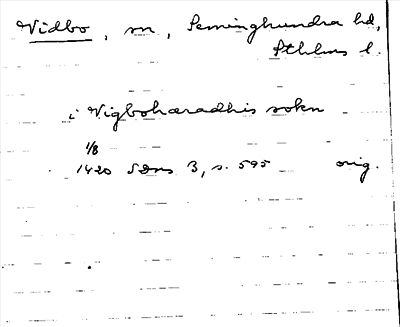 Vidbo, sn, Seminghundra hd,
Sthlms l.
i Vigbohæradhis sokn
1/8
1420 SDns 3, s. 595 orig.